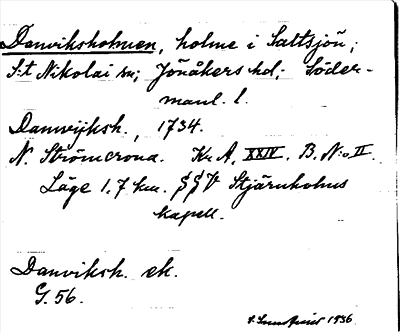 Danviksholmen, holme i Saltsjön;
S:t Nikolai sn; Jönåkers hd; Söder-
manl. l.
Danwijksh., 1734.
N. Strömcrona. Kr. A, XXIV. B. N:o II.
Läge 1,7 km. SSV Stjärnholms
kapell.
Danviksh. ek.
G. 56.
1936